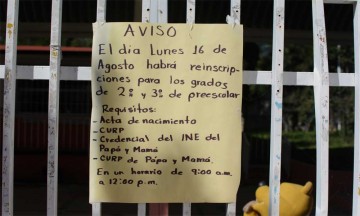 AVISO
El día Lunes 16 de
Agosto habrá reinscrip-
ciones para los grados
de 2º y 3º de preescolar
Requisitos:
- Acta de nacimiento
- CURP
- Credencial del INE del
Papá y Mamá
- CURP de Papá y Mamá.
En un horario de 9:00 a.m
a 12:00 p.m.